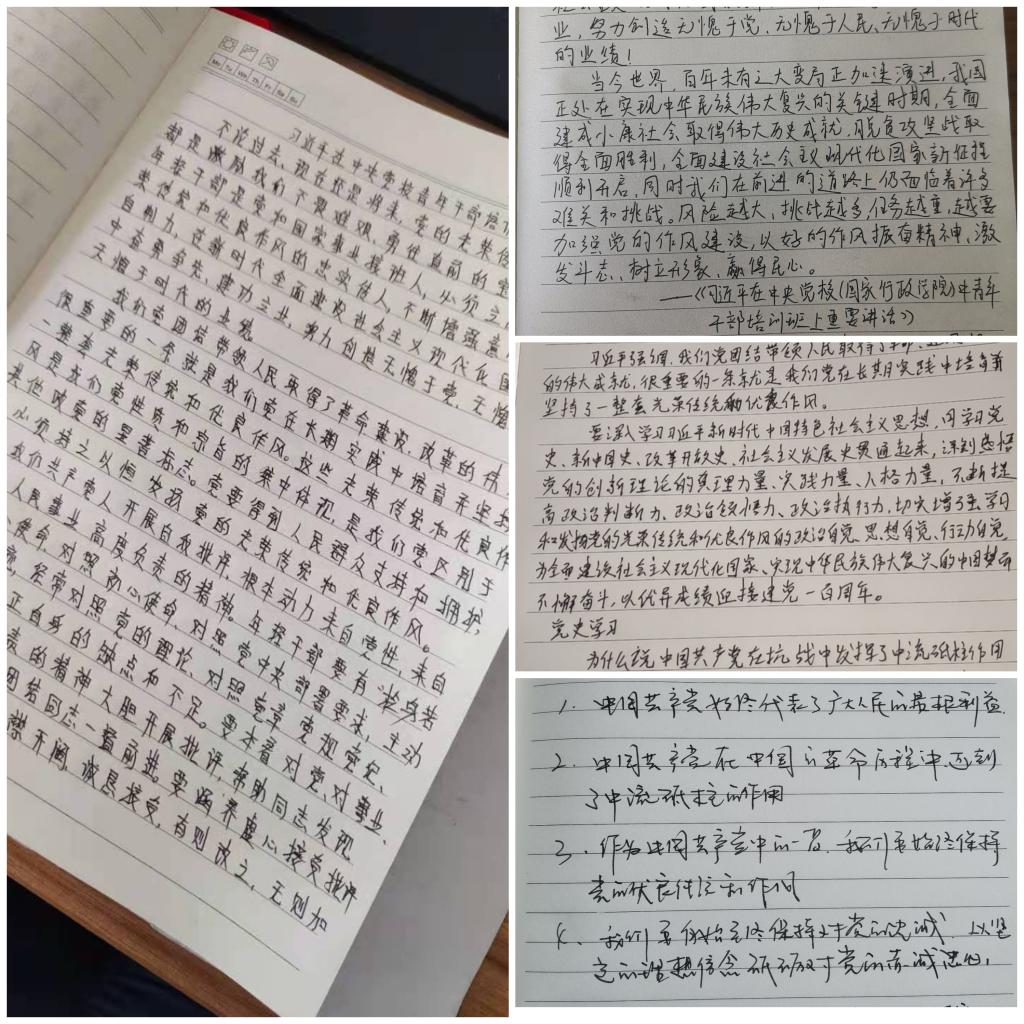 Mo Tu We Th Fr Sa Su
习近平在中央党校青年干部培训
不论过去、现在还是将来，党的光荣传
都是激励我们不畏艰难、勇往直前的宝
年轻干部是党和国家事业接班人，必须立
荣传统和优良作风的忠实传人，不断增强意
自制力，在新时代全面建设社会主义现代化国
中奋勇争先、建功立业，努力创造无愧于党、无愧
无愧于时代的业绩。
我们党团结带领人民取得了革命建设、改革的伟
很重要的一条就是我们党在长期实践中培育并坚持
一整套光荣传统和优良作风。这些光荣传统和优良作
风是我们党性质和宗旨的集中体现，是我们党区别于
其他政党的显著标志。党要得到人民群众支持和拥护，
必须持之以恒发扬党的光荣传统和优良作风。
我们共产党人开展自我批评，根本动力来自党性，来自
人民事业高度负责的精神。年轻干部要有
使命，对照初心使命，对照党中央部署要求，主动
经常对照党的理论，对照党章党规党纪，
正自身的缺点和不足。要本着对党、对事业、
责的精神大胆开展批评，帮助同志发现
团结同志一道前进。要涵养虚心接受批评
襟开阔，诚恳接受，有则改之，无则加
业，努力创造无愧于党、无愧于人民、无愧于时代
的业绩！
当今世界，百年未有之大变局正加速演进，我国
正处在实现中华民族伟大复兴的关键时期，全面
建成小康社会取得伟大历史成就，脱贫攻坚战取
得全面胜利，全面建设社会主义现代化国家新征程
顺利开启，同时我们在前进的道路上仍面临着许多
难关和挑战。风险越大，挑战越多，任务越重，越要
加强党的作风建设，以好的作风振奋精神、激
发斗志、树立形象、赢得民心。
——《习近平在中央党校(国家行政学院)中青年
干部培训班上重要讲话》
习近平强调，我们党团结带领人民取得了革命、
的伟大成就，很重要的一条就是我们党在长期实践中培育并
坚持了一整套光荣传统和优良作风。
要深入学习习近平新时代中国特色社会主义思想，同学习党
史、新中国史、改革开放史、社会主义发展史贯通起来，深刻感悟
党的创新理论的真理力量、实践力量、人格力量，不断提
高政治判断力、政治领悟力、政治执行力，切实增强学习
和发扬党的光荣传统和优良作风的政治自觉、思想自觉、行动自觉
为全面建设社会主义现代化国家、实现中华民族伟大复兴的中国梦而
不懈奋斗，以优异成绩迎接建党一百周年。
党史学习
为什么说中国共产党在抗战中发挥了中流砥柱作用
1. 中国共产党始终代表了广大人民的最根利益.
2. 中国共产党在中国的革命历程中达到
了中流砥柱的作用
3. 作为中国共产党中的一员，我们要始终保持
党的优良传统和作风
4. 我们要始终保持对党的忠诚，以坚
定的理想信念砥砺对党的赤诚忠心，